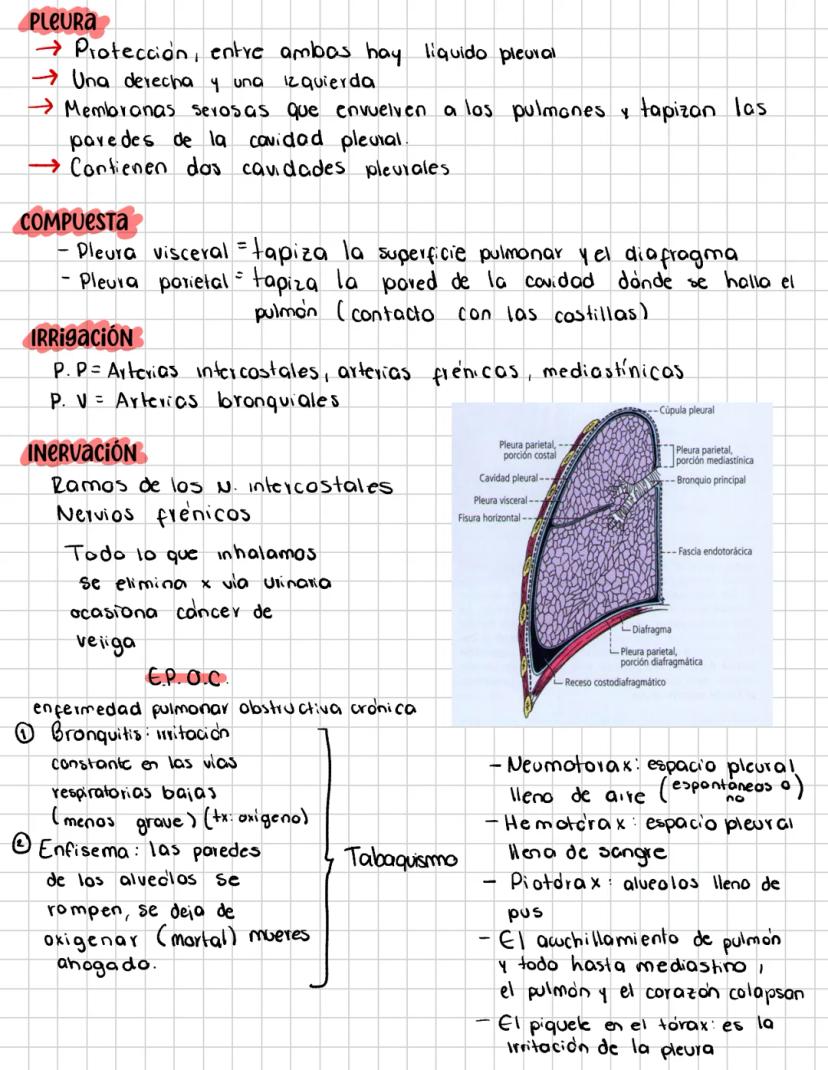 PLEURA
→ Protección, entre ambas hay líquido pleural
→ Una derecha y una izquierda
→ Membranas serosas que envuelven a los pulmones y tapizan las
paredes de la cavidad pleural.
→ Contienen dos cavidades pleurales
COMPUESTA
- Pleura visceral = tapiza la superficie pulmonar y el diafragma
- Pleura parietal = tapiza la pared de la cavidad dónde se halla el
pulmón (contacto con las costillas)
IRRIGACIÓN
P. P = Arterias intercostales, arterias frénicas, mediastínicas
P. V = Arterias bronquiales
INERVACIÓN
Ramos de los N. intercostales
Nervios frénicos
Todo lo que inhalamos
se elimina x vía urinaria
ocasiona cáncer de
vejiga
Cúpula pleural
Pleura parietal,
porción costal
Pleura parietal,
porción mediastínica
Cavidad pleural
Bronquio principal
Pleura visceral
Fisura horizontal
Fascia endotorácica
Diafragma
Pleura parietal,
porción diafragmática
Receso costodiafragmático
E.P.O.C.
enfermedad pulmonar obstructiva crónica
① Bronquitis: irritación
constante en las vías
respiratorias bajas
(menos grave) (tx: oxígeno)
② Enfisema: las paredes
de los alveolos se
rompen, se deja de
oxigenar (mortal) mueres
ahogado.
Tabaquismo
- Neumotorax: espacio pleural
lleno de aire (espontaneos o
no)
- Hemotórax: espacio pleural
llena de sangre
- Piotórax: alveolos lleno de
pus
- El acuchillamiento de pulmón
y todo hasta mediastino,
el pulmón y el corazón colapsan
- El piquete en el tórax: es la
irritación de la pleura